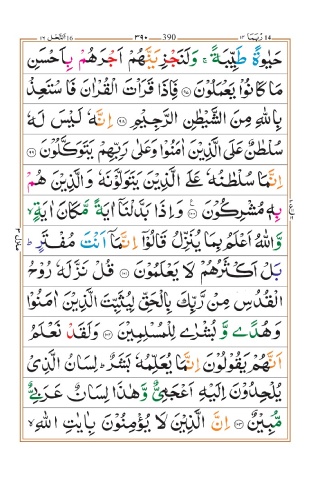 رُبَمَا ١٤ 390 ٣٩٠ اَلنَّحْل 16 ١٦
حَيٰوةً طَيِّبَةً ۚ وَلَنَجْزِيَنَّهُمْ اَجْرَهُمْ بِاَحْسَنِ
مَا كَانُوْا يَعْمَلُوْنَ ﴿٩٧﴾ فَاِذَا قَرَاْتَ الْقُرْاٰنَ فَاسْتَعِذْ
بِاللّٰهِ مِنَ الشَّيْطٰنِ الرَّجِيْمِ ﴿٩٨﴾ اِنَّهٗ لَيْسَ لَهٗ
سُلْطٰنٌ عَلَى الَّذِيْنَ اٰمَنُوْا وَعَلٰى رَبِّهِمْ يَتَوَكَّلُوْنَ ﴿٩٩﴾
اِنَّمَا سُلْطٰنُهٗ عَلَى الَّذِيْنَ يَتَوَلَّوْنَهٗ وَالَّذِيْنَ هُمْ
بِهٖ مُشْرِكُوْنَ ﴿١٠٠﴾ وَاِذَا بَدَّلْنَاۤ اٰيَةً مَّكَانَ اٰيَةٍ ۙ
وَّاللّٰهُ اَعْلَمُ بِمَا يُنَزِّلُ قَالُوْۤا اِنَّمَاۤ اَنْتَ مُفْتَرٍ ؕ
بَلْ اَكْثَرُهُمْ لَا يَعْلَمُوْنَ ﴿١٠١﴾ قُلْ نَزَّلَهٗ رُوْحُ
الْقُدُسِ مِنْ رَّبِّكَ بِالْحَقِّ لِيُثَبِّتَ الَّذِيْنَ اٰمَنُوْا
وَهُدًى وَّ بُشْرٰى لِلْمُسْلِمِيْنَ ﴿١٠٢﴾ وَلَقَدْ نَعْلَمُ
اَنَّهُمْ يَقُوْلُوْنَ اِنَّمَا يُعَلِّمُهٗ بَشَرٌ ؕ لِسَانُ الَّذِيْ
يُلْحِدُوْنَ اِلَيْهِ اَعْجَمِيٌّ وَّهٰذَا لِسَانٌ عَرَبِيٌّ
مُّبِيْنٌ ﴿١٠٣﴾ اِنَّ الَّذِيْنَ لَا يُؤْمِنُوْنَ بِاٰيٰتِ اللّٰهِ ۙ